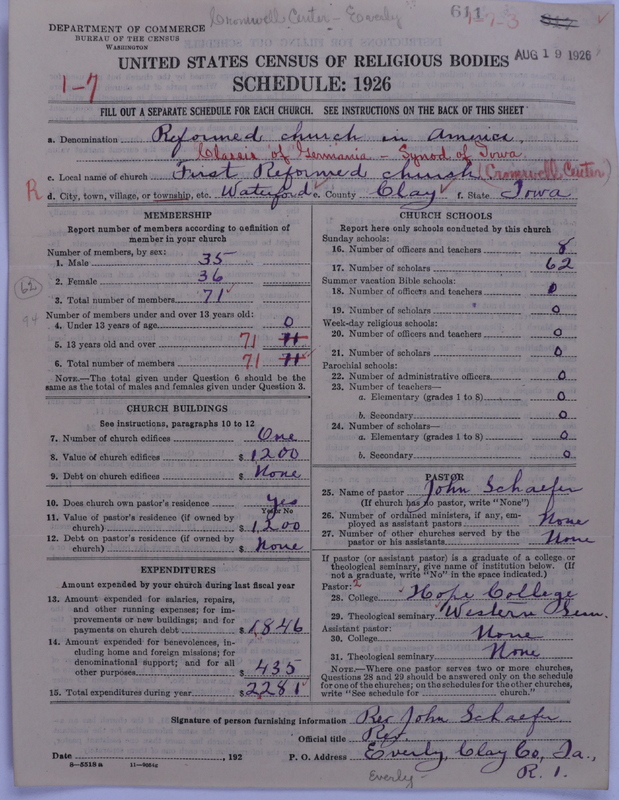 Cromwell Center - Everly
611
7-3
DEPARTMENT OF COMMERCE
BUREAU OF THE CENSUS
WASHINGTON
AUG 19 1926
UNITED STATES CENSUS OF RELIGIOUS BODIES
SCHEDULE: 1926
1-7
FILL OUT A SEPARATE SCHEDULE FOR EACH CHURCH. SEE INSTRUCTIONS ON THE BACK OF THIS SHEET
a. Denomination Reformed church in America
Classis of Germania - Synod of Iowa
c. Local name of church First Reformed church (Cromwell Center)
R d. City, town, village, or township, etc. Waterford e. County Clay f. State Iowa
MEMBERSHIP
Report number of members according to definition of
member in your church
Number of members, by sex:
1. Male 35
2. Female 36
62
3. Total number of members 71
94
Number of members under and over 13 years old:
4. Under 13 years of age 0
5. 13 years old and over 71 71
6. Total number of members 71 71
NOTE.—The total given under Question 6 should be the
same as the total of males and females given under Question 3.
CHURCH BUILDINGS
See instructions, paragraphs 10 to 12
7. Number of church edifices One
8. Value of church edifices $ 1200
9. Debt on church edifices $ None
10. Does church own pastor's residence Yes
Yes or No
11. Value of pastor's residence (if owned by
church) $ 1200
12. Debt on pastor's residence (if owned by
church) $ None
EXPENDITURES
Amount expended by your church during last fiscal year
13. Amount expended for salaries, repairs,
and other running expenses; for im-
provements or new buildings; and for
payments on church debt $ 1846
14. Amount expended for benevolences, in-
cluding home and foreign missions; for
denominational support; and for all
other purposes $ 435
15. Total expenditures during year $ 2281
CHURCH SCHOOLS
Report here only schools conducted by this church
Sunday schools:
16. Number of officers and teachers 8
17. Number of scholars 62
Summer vacation Bible schools:
18. Number of officers and teachers 0
19. Number of scholars 0
Week-day religious schools:
20. Number of officers and teachers 0
21. Number of scholars 0
Parochial schools:
22. Number of administrative officers 0
23. Number of teachers—
a. Elementary (grades 1 to 8) 0
b. Secondary 0
24. Number of scholars—
a. Elementary (grades 1 to 8) 0
b. Secondary 0
PASTOR
25. Name of pastor John Schaefer
(If church has no pastor, write "None")
26. Number of ordained ministers, if any, em-
ployed as assistant pastors None
27. Number of other churches served by the
pastor or his assistants None
If pastor (or assistant pastor) is a graduate of a college or
theological seminary, give name of institution below. (If
not a graduate, write "No" in the space indicated.)
Pastor: 2
28. College Hope College
29. Theological seminary Western Sem.
Assistant pastor:
30. College None
31. Theological seminary None
NOTE.—Where one pastor serves two or more churches,
Questions 28 and 29 should be answered only on the schedule
for one of the churches; on the schedules for the other churches,
write "See schedule for church."
Signature of person furnishing information Rev John Schaefer
Official title Rev.
Date , 192 P. O. Address Everly, Clay Co, Ia.,
8-5518 a
Everly-
R. 1.